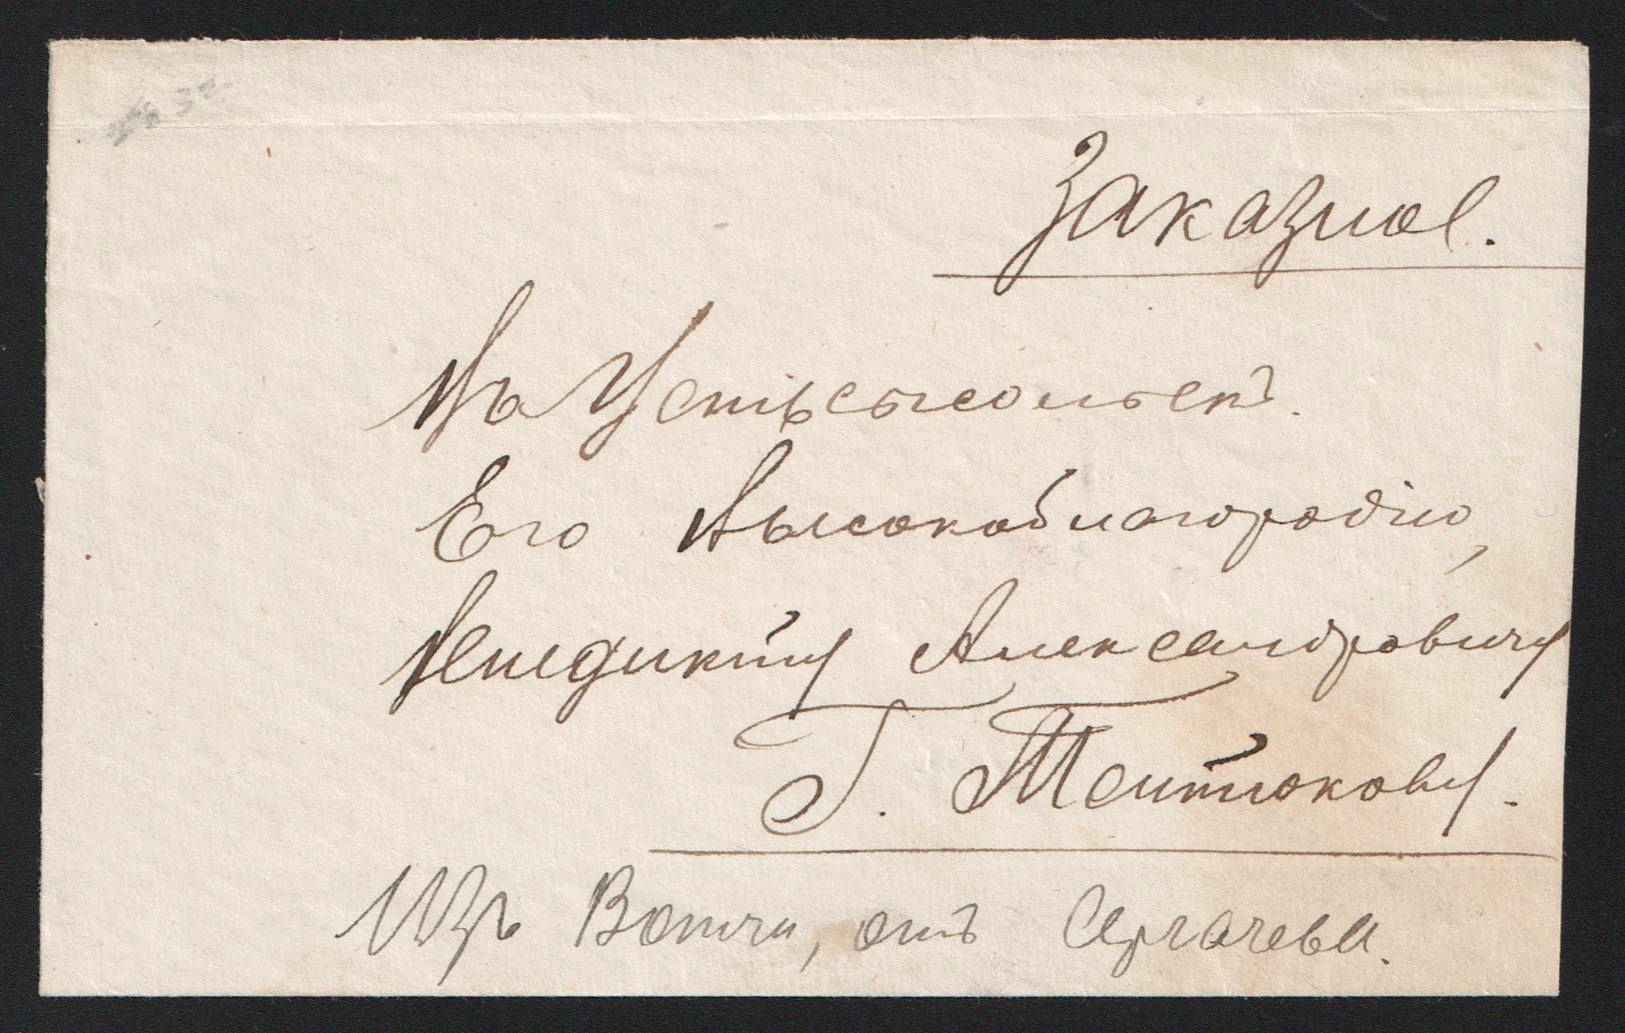 Заказное.
Въ Устьсысольскъ.
Его Высокоблагородію,
Венедикту Александровичу
Г. Тентюкову.
Изъ Вотчи, отъ Сергачева.